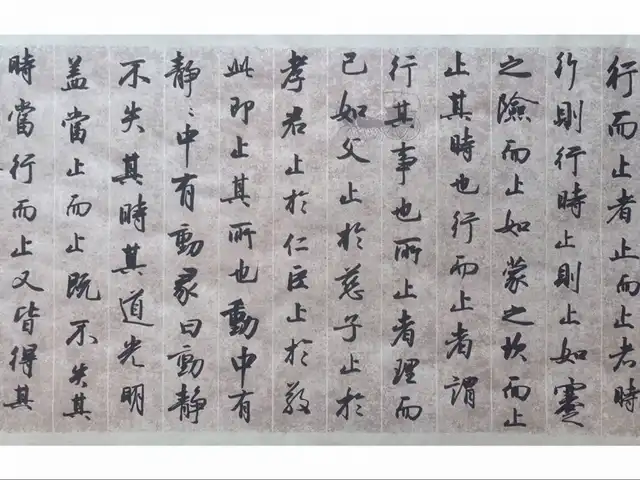 行而止者止而止者時
行則行時止則止如蹇
之險而止如蒙之坎而止
止其時也行而止者謂
行其事也所止者理而
已如父止於慈子止於
孝君止於仁臣止於敬
此即止其所也動中有
靜〻中有動彖曰動靜
不失其時其道光明
盖當止而止既不失其
時當行而止又皆得其